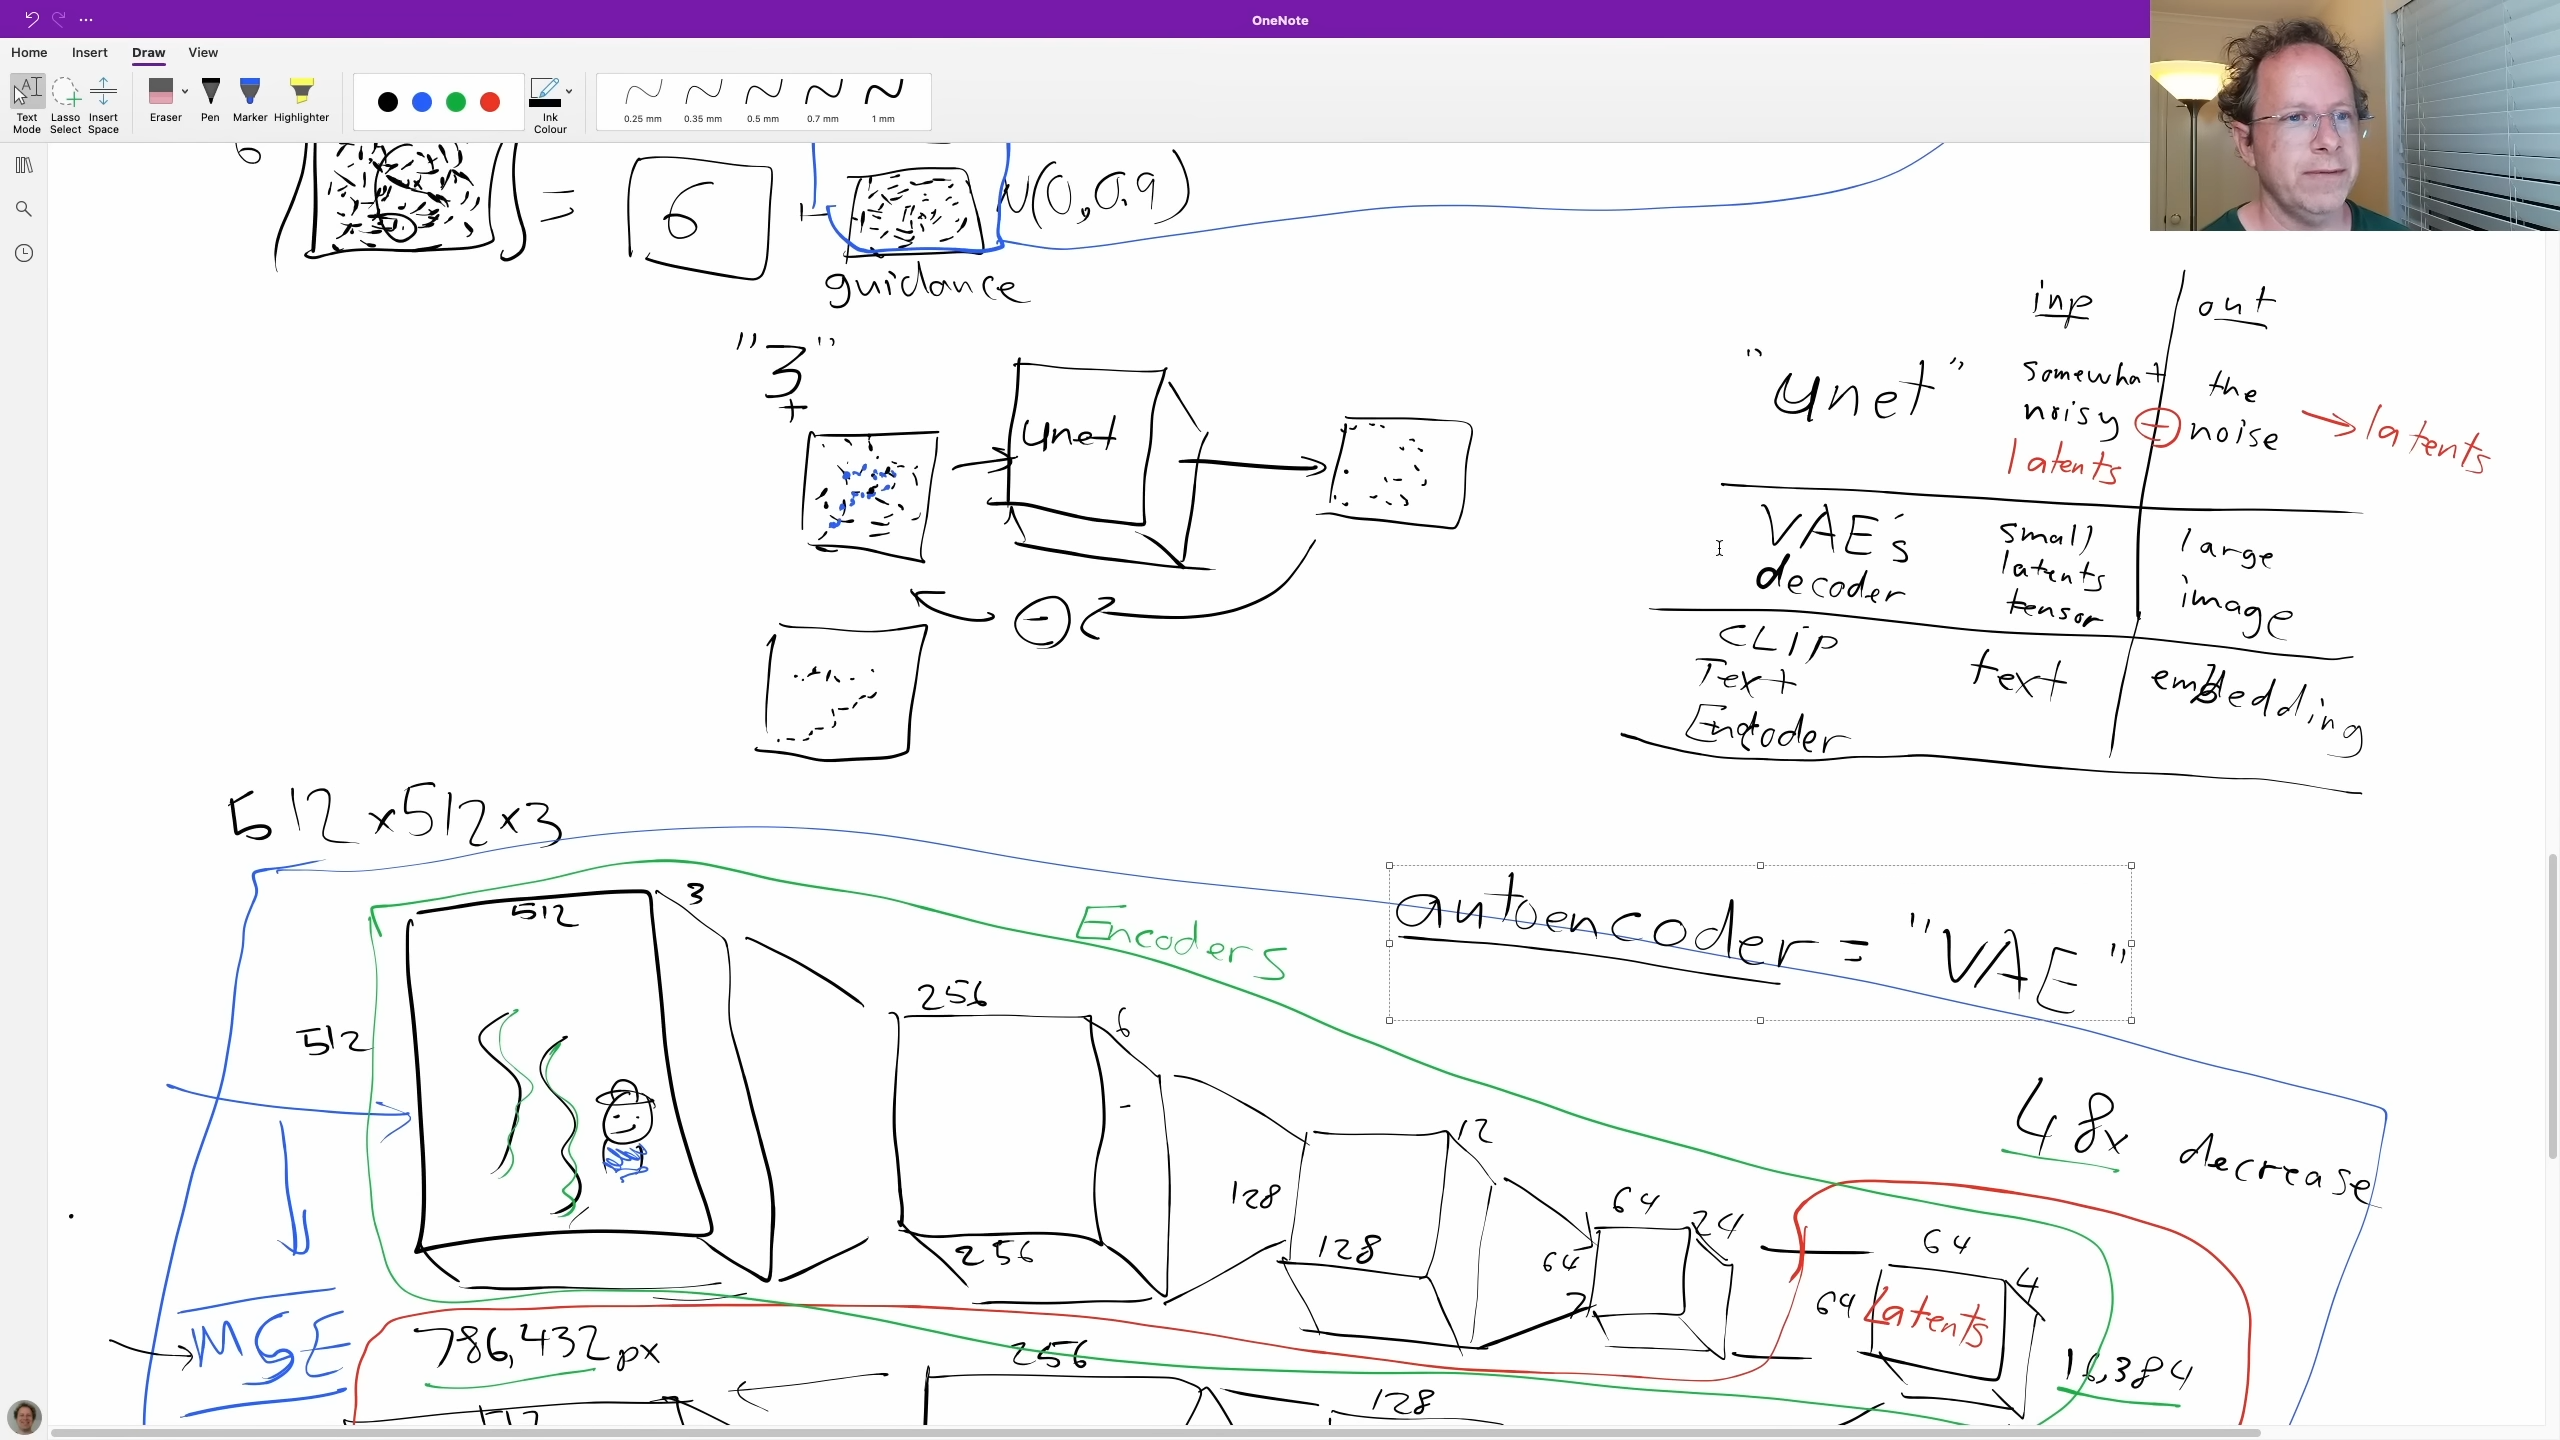 OneNote
Home Insert Draw View
Text Mode
Lasso Select
Insert Space
Eraser
Pen
Marker
Highlighter
Ink Colour
0.25 mm
0.35 mm
0.5 mm
0.7 mm
1 mm
6
= 6
N(0,0.9)
guidance
"3"
+
unet
−
inp out
"unet"
somewhat noisy latents
−
the noise
→ latents
VAE's decoder
small latents tensor
large image
CLIP Text Encoder
text
embedding
512×512×3
512
3
512
Encoders
autoencoder = "VAE"
256
6
256
12
128
128
64
24
64
48x decrease
64
4
64
Latents
16,384
MSE
786,432 px
256
128
512